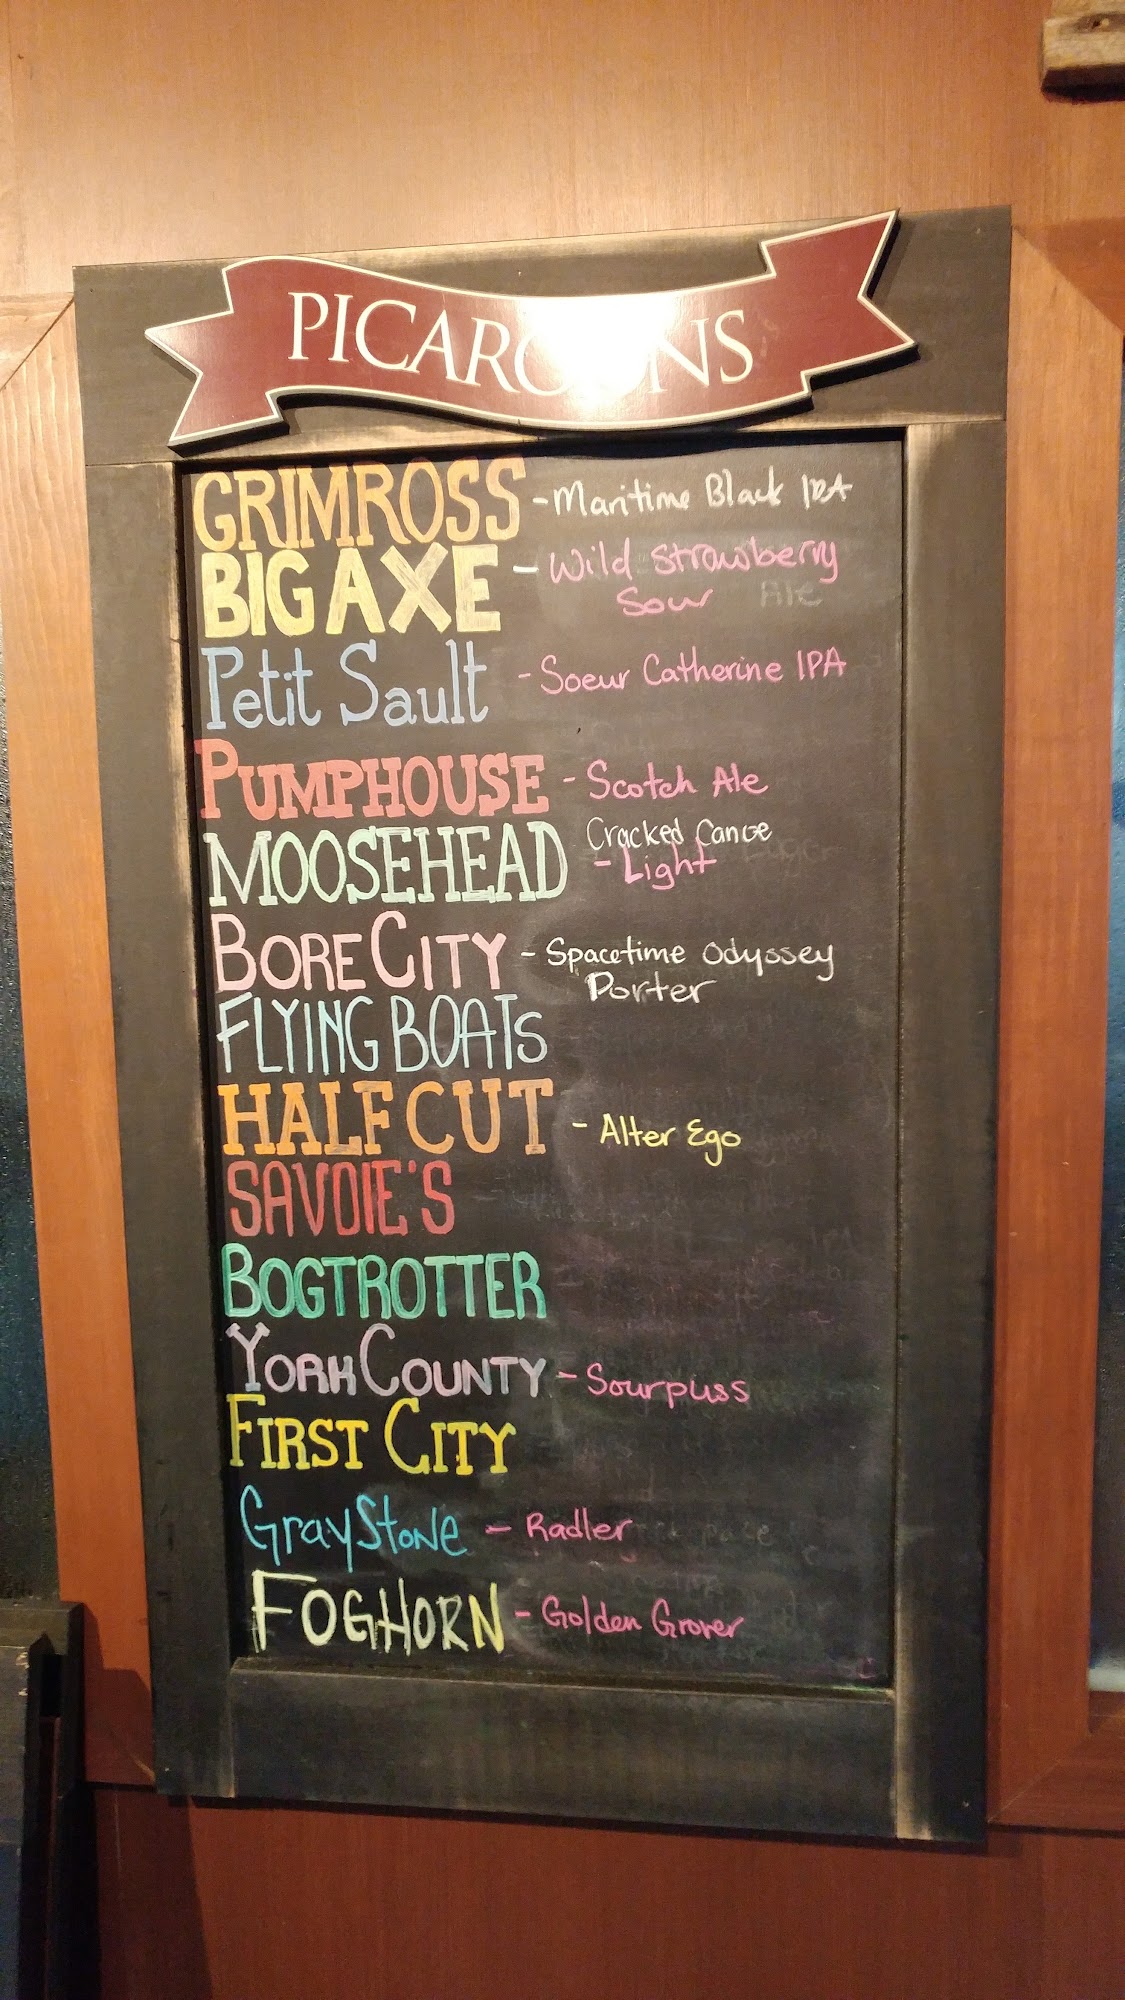 PICAROONS
GRIMROSS - Maritime Black IPA
BIG AXE - Wild Strawberry
Sour Ale
Petit Sault - Soeur Catherine IPA
PUMPHOUSE - Scotch Ale
Cracked Canoe
MOOSEHEAD - Light
BORE CITY - Spacetime Odyssey
Porter
FLYING BOATS
HALF CUT - Alter Ego
SAVOIE'S
BOGTROTTER
YORK COUNTY - Sourpuss
FIRST CITY
GrayStone - Radler
FOGHORN - Golden Grover